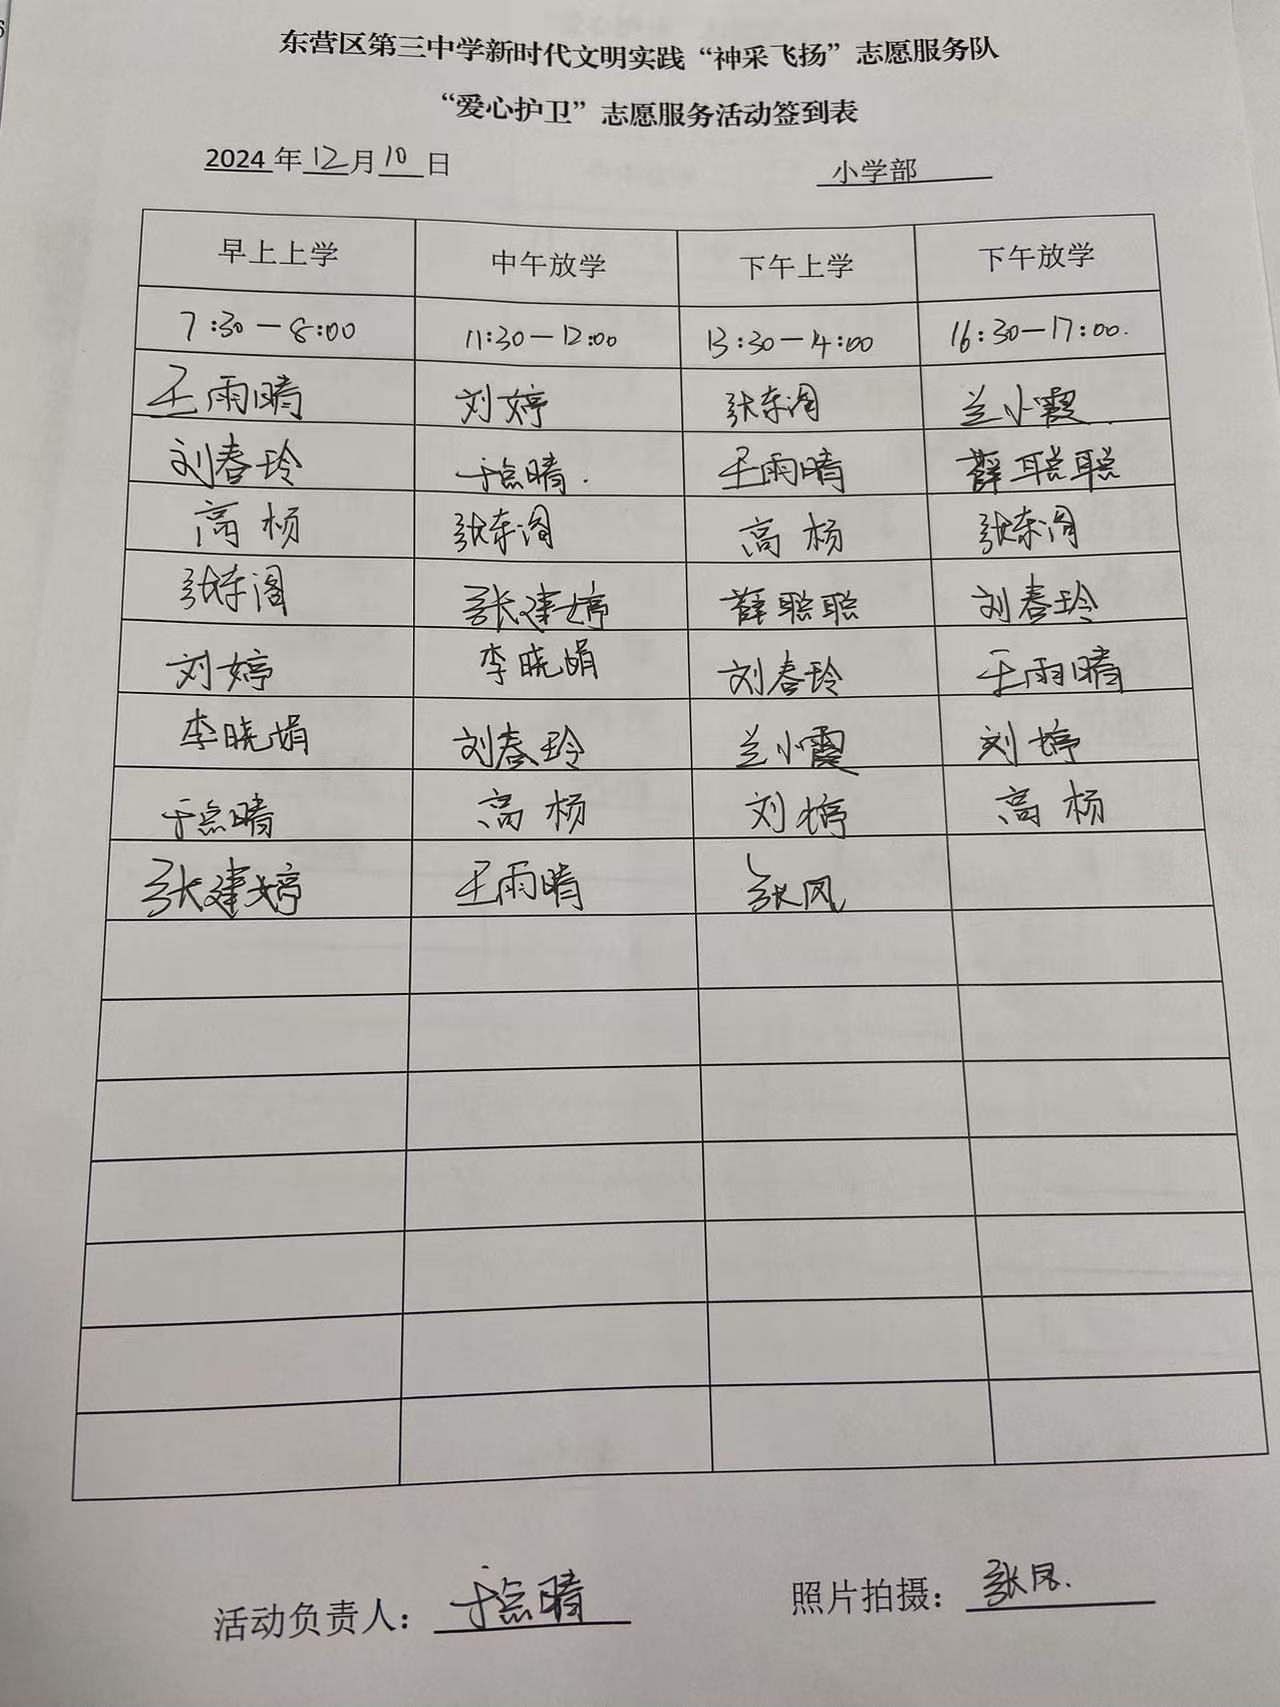 东营区第三中学新时代文明实践“神采飞扬”志愿服务队
“爱心护卫”志愿服务活动签到表
2024年12月10日 小学部
早上上学 中午放学 下午上学 下午放学
7:30—8:00 11:30—12:00 13:30—4:00 16:30—17:00.
王雨晴 刘婷 张东阁 兰小霞
刘春玲 于点晴. 王雨晴 薛聪聪
高杨 张东阁 高杨 张东阁
张东阁 张建婷 薛聪聪 刘春玲
刘婷 李晓娟 刘春玲 王雨晴
李晓娟 刘春玲 兰小霞 刘婷
于点晴 高杨 刘婷 高杨
张建婷 王雨晴 张凤
活动负责人：于点晴 照片拍摄：张凤.